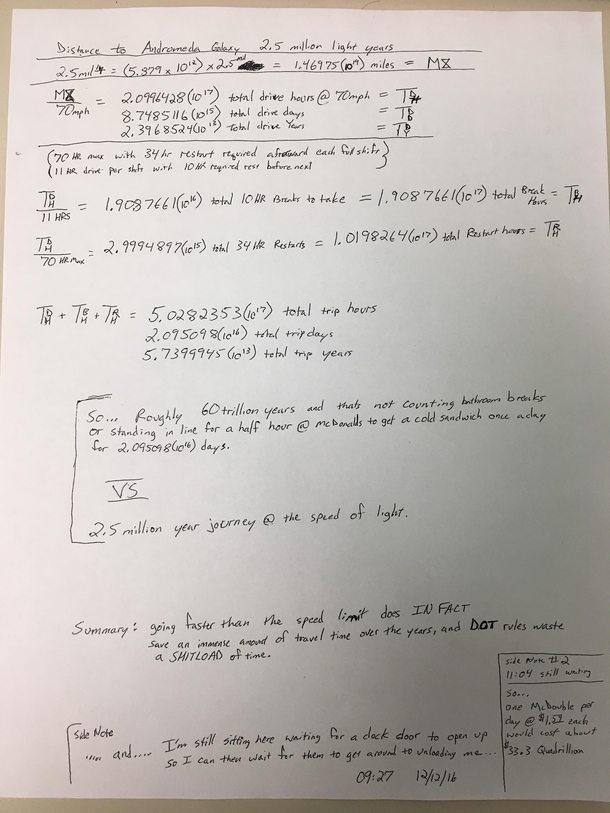 Distance to Andromeda Galaxy 2.5 million light years
2.5mil = (5.879 x 10¹²) x 2.5 mil = 1.46975(10¹⁹) miles = MX
MX / 70mph = 2.0996428(10¹⁷) total drive hours @ 70mph = TDH
8.7485116(10¹⁵) total drive days = TDD
2.3968524(10¹³) Total drive Years = TDY
(70 HR max with 34 hr restart required afterward each full shift)
(11 HR drive per shift with 10 HR required rest before next)
TDH / 11 HRS = 1.9087661(10¹⁶) total 10 HR Breaks to take = 1.9087661(10¹⁷) total Break Hours = TBH
TDH / 70 HR max = 2.9994897(10¹⁵) total 34 HR Restarts = 1.0198264(10¹⁷) total Restart hours = TRH
TDH + TBH + TRH = 5.0282353(10¹⁷) total trip hours
2.095098(10¹⁶) total trip days
5.7399945(10¹³) total trip years
So... Roughly 60 trillion years and thats not counting bathroom breaks
or standing in line for a half hour @ mcDonalds to get a cold sandwich once a day
for 2.095098(10¹⁶) days.
VS
2.5 million year journey @ the speed of light.
Summary: going faster than the speed limit does IN FACT
save an immense amount of travel time over the years, and DOT rules waste
a SHITLOAD of time.
Side Note
..... and..... I'm still sitting here waiting for a dock door to open up
so I can then wait for them to get around to unloading me...
09:27 12/12/16
side Note #2
11:04 still waiting
So...
one McDouble per
day @ each
would cost about
$33.3 Quadrillion